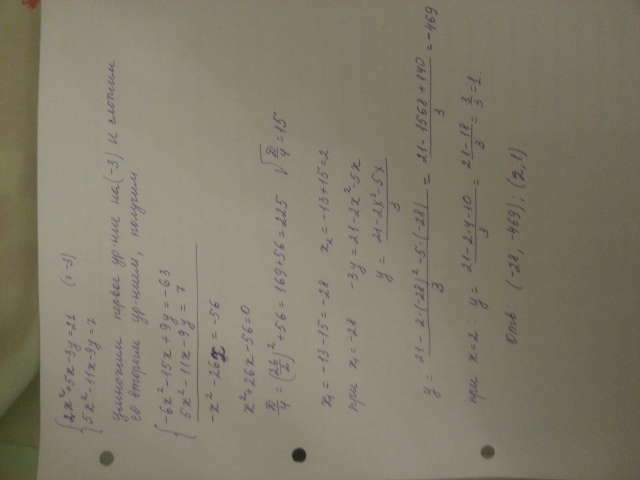 {2x²+5x-3y=21 (·-3)
{5x²-11x-9y=7
умножим первое ур-ние на (-3) и сложим
со вторым ур-нием, получим
{-6x²-15x+9y=-63
{5x²-11x-9y=7
-x²-26x=-56
x²+26x-56=0
D/4=(26/2)²+56=169+56=225 √D/4=15
x₁=-13-15=-28 x₂=-13+15=2
при x₁=-28 -3y=21-2x²-5x
y=(21-2x²-5x)/3
y=(21-2·(-28)²-5·(-28))/3=(21-1568+140)/3=-469
при x=2: y=(21-2·4-10)/3=(21-18)/3=3/3=1
Отв: (-28; -469); (2,1)